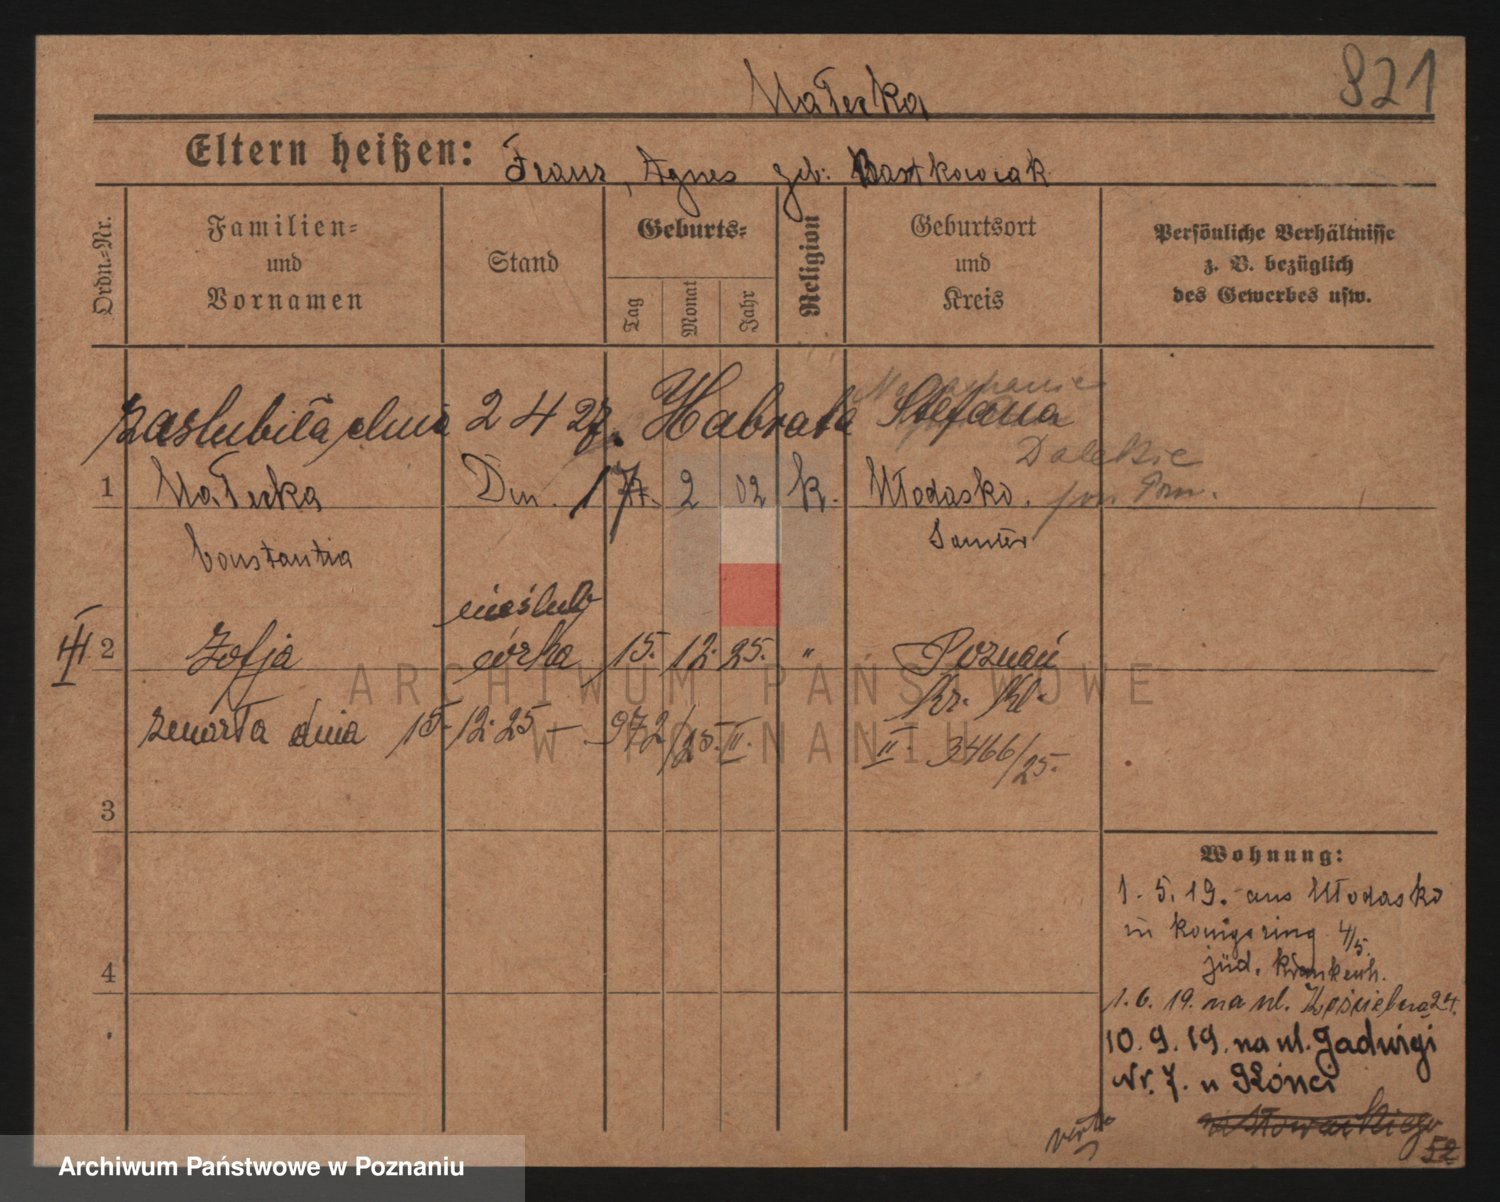 Małecka
821
Eltern heißen: Franz, Agnes geb: Bartkowiak
Ordn.-Nr.
Familien-
und
Vornamen
Stand
Geburts-
Tag
Monat
Jahr
Religion
Geburtsort
und
Kreis
Persönliche Verhältnisse
z. B. bezüglich
des Gewerbes usw.
zaslubiła dnia 2 4 27. Habrata Stefana
1 Małecka Dm. 17. 2 02 k. Młodasko.
Constantia Samter
nieślub
III 2 Zofja córka 15. 12. 25. " Poznań
zmarła dnia 15.12.25 – 972/25. II. II. 3466/25.
3
4
Wohnung:
1. 5. 19. aus Młodasko
in Königsring 4/5.
jüd. Krankenh.
1. 6. 19. na ul. 24.
10. 9. 19. na ul. Jadwigi
Nr. 7. u
verte
52
ARCHIWUM PAŃSTWOWE
W POZNANIU
Archiwum Państwowe w Poznaniu